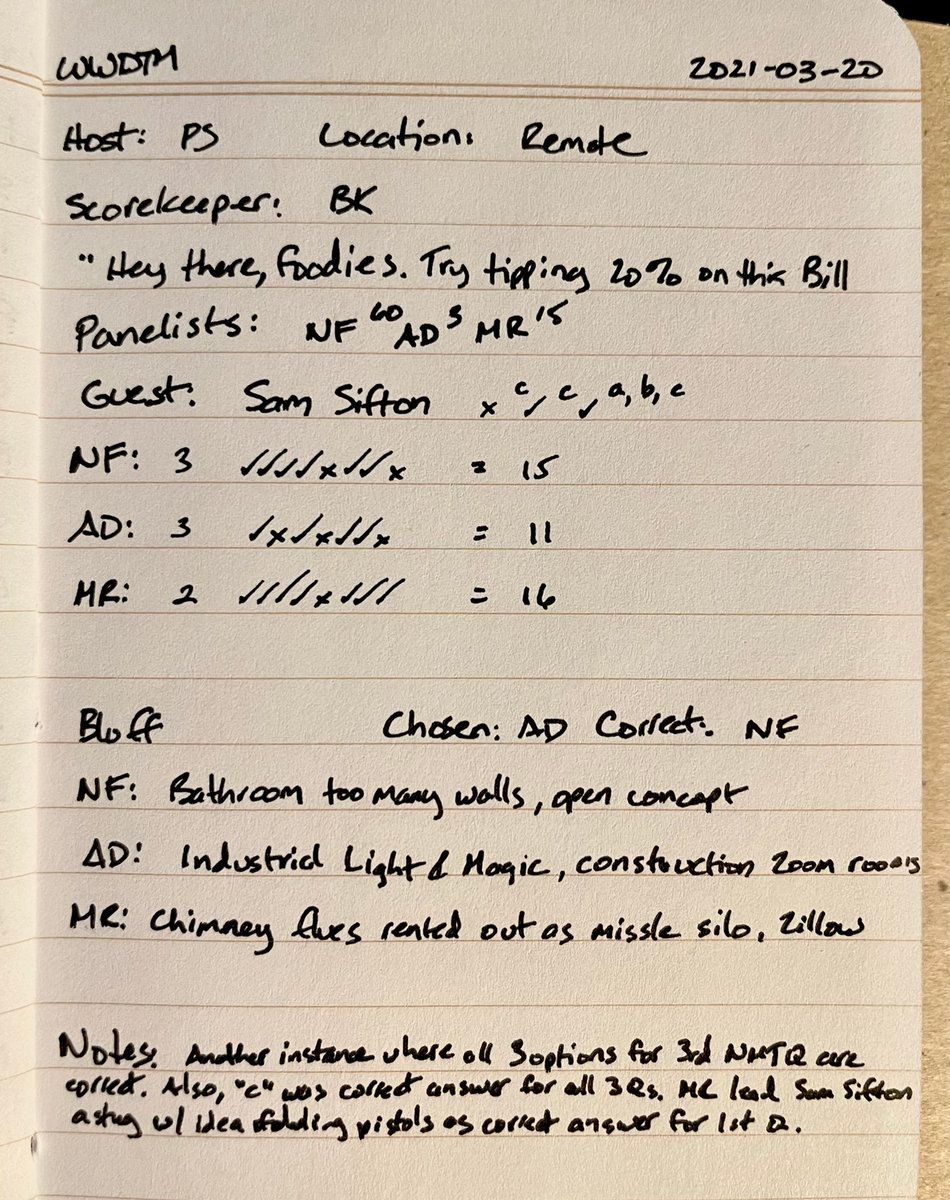 WWDTM 2021-03-20
Host: PS Location: Remote
Scorekeeper: BK
"Hey there, foodies. Try tipping 20% on this Bill
Panelists: NF 60 AD 3 MR 15
Guest: Sam Sifton x c ✓ c ✓ a, b, c
NF: 3 ✓✓✓✓x✓✓x = 15
AD: 3 ✓x✓x✓✓x = 11
MR: 2 ✓✓✓✓x✓✓✓ = 16
Bluff Chosen: AD Correct: NF
NF: Bathroom too many walls, open concept
AD: Industrial Light & Magic, construction Zoom rooms
MR: Chimney flues rented out as missle silo, Zillow
Notes: Another instance where all 3 options for 3rd NMTQ are
correct. Also, "c" was correct answer for all 3 Qs. lead Sam Sifton
astray w/ idea folding pistols as correct answer for 1st Q.